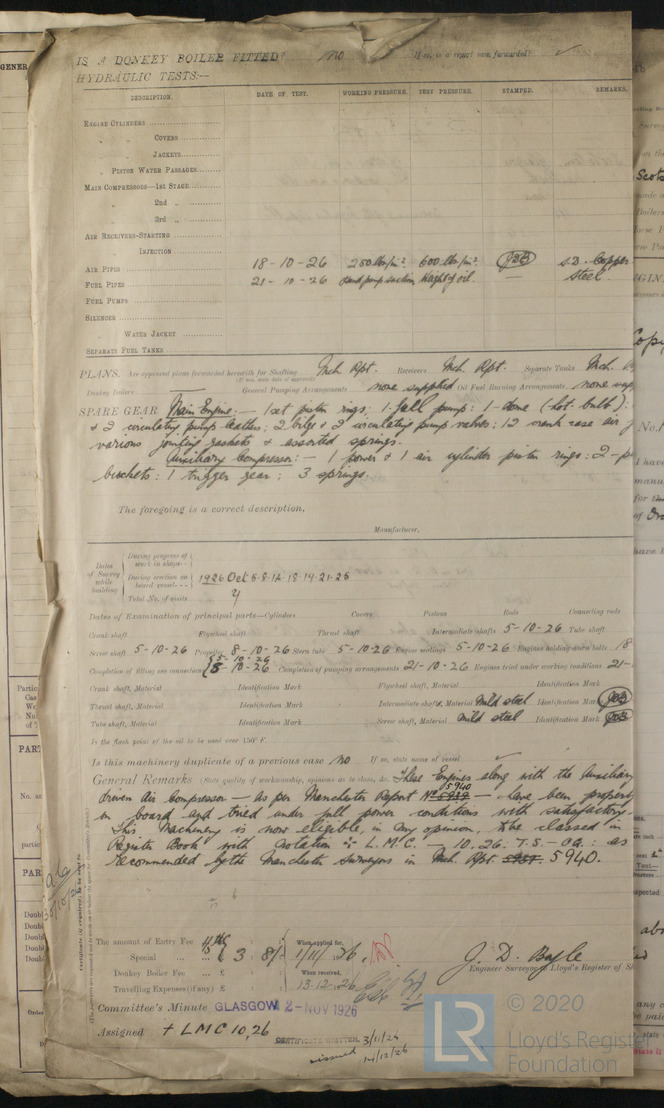 IS A DONKEY BOILER FITTED? no If so, is a report now forwarded? ✓
HYDRAULIC TESTS:—
DESCRIPTION. DATE OF TEST. WORKING PRESSURE. TEST PRESSURE. STAMPED. REMARKS.
ENGINE CYLINDERS
" " COVERS
" " JACKETS
" PISTON WATER PASSAGES
MAIN COMPRESSORS—1st STAGE
" 2nd "
" 3rd "
AIR RECEIVERS—STARTING
" INJECTION
AIR PIPES 18-10-26 280 lbs/in² 600 lbs/in² S.D. Copper
FUEL PIPES 21-10-26 hand pump suction Weight of oil. — Steel
FUEL PUMPS
SILENCER
" WATER JACKET
SEPARATE FUEL TANKS
PLANS. Are approved plans forwarded herewith for Shafting Mch. Rpt. Receivers Mch. Rpt. Separate Tanks Mch.
(If not, state date of approval)
Donkey Boilers — General Pumping Arrangements none supplied Oil Fuel Burning Arrangements none
SPARE GEAR Main Engine:— 1 set piston rings: 1 fuel pump: 1-dome (hot bulb):
& 3 circulating pump leathers: 2 bilge & 3 circulating pump valves: 12 crank case air
various jointing gaskets & assorted springs.
Auxiliary Compressor:— 1 power & 1 air cylinder piston rings: 2-
buckets: 1 trigger gear: 3 springs.
The foregoing is a correct description,
Manufacturer.
Dates of Survey while building
During progress of work in shops--
During erection on board vessel--- 1926 Oct 5.8.12.18.19.21.25
Total No. of visits 7
Dates of Examination of principal parts—Cylinders Covers Pistons Rods Connecting rods
Crank shaft Flywheel shaft Thrust shaft Intermediate shafts 5-10-26 Tube shaft
Screw shaft 5-10-26 Propeller 8-10-26 Stern tube 5-10-26 Engine seatings 5-10-26 Engines holding down bolts 18
Completion of fitting sea connections 5-10-26 8-10-26 Completion of pumping arrangements 21-10-26 Engines tried under working conditions 21-
Crank shaft, Material Identification Mark Flywheel shaft, Material Identification Mark
Thrust shaft, Material Identification Mark Intermediate shafts, Material Mild steel Identification Mark
Tube shaft, Material Identification Mark Screw shaft, Material Mild steel Identification Mark
Is the flash point of the oil to be used over 150° F.
Is this machinery duplicate of a previous case no If so, state name of vessel ✓
General Remarks (State quality of workmanship, opinions as to class, &c. These Engines along with the Auxiliary
driven Air Compressor — as per Manchester Report No 5940 — have been properly
on board and tried under full power conditions with satisfactory
This Machinery is now eligible, in my opinion, to be classed in
Register Book with notation L.M.C. — 10.26. T.S. — O.G.: as
recommended by the Manchester Surveyors in Mch. Rpt. 5940.
The amount of Entry Fee £ When applied for,
Special £ 3 : 8/: 1/11/26.
Donkey Boiler Fee £ When received,
Travelling Expenses (if any) £ 13.12.26
J. D. Boyle
Engineer Surveyor to Lloyd's Register of
Committee's Minute GLASGOW 2-NOV 1926
Assigned + LMC 10,26
CERTIFICATE WRITTEN. 3/11/26
issued 14/12/26
LR
© 2020
Lloyd's Register
Foundation